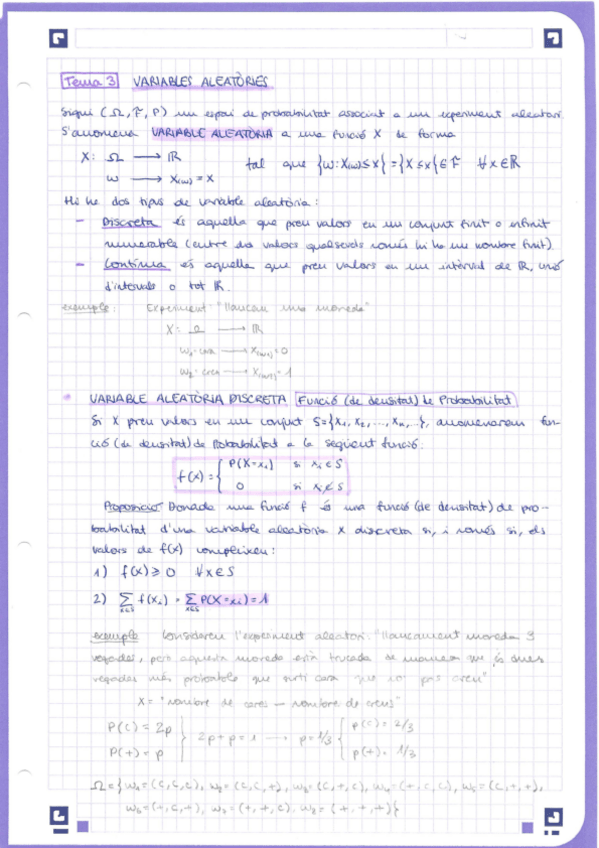 Tema 3 VARIABLES ALEATÒRIES
Sigui (Ω, F, P) un espai de probabilitat associat a un experiment aleatori.
S'anomena VARIABLE ALEATÒRIA a una funció X de forma
X: Ω ⟶ ℝ tal que {w: X(w) ≤ x} = {X ≤ x} ∈ F ∀x ∈ ℝ
w ⟶ X(w) = x
Hi ha dos tipus de variable aleatòria:
- Discreta és aquella que pren valors en un conjunt finit o infinit
numerable (entre dos valors qualsevols només hi ha un nombre finit).
- Contínua és aquella que pren valors en un interval de ℝ, unió
d'intervals o tot ℝ.
exemple: Experiment: "llancem una moneda"
X: Ω ⟶ ℝ
w₁=cara ⟶ X(w₁)=0
w₂=creu ⟶ X(w₂)=1
• VARIABLE ALEATÒRIA DISCRETA Funció (de densitat) de Probabilitat
Si X pren valors en un conjunt S={x₁, x₂, ..., xₙ, ...}, anomenarem fun-
ció (de densitat) de Probabilitat a la següent funció:
f(x) = { P(X=xᵢ) si xᵢ ∈ S
0 si xᵢ ∉ S
Proposició Donada una funció f és una funció (de densitat) de pro-
babilitat d'una variable aleatòria X discreta si, i només si, els
valors de f(x) compleixen:
1) f(x) ≥ 0 ∀x ∈ S
2) Σ x∈S f(xᵢ) = Σ x∈S P(X=xᵢ) = 1
exemple Considerem l'experiment aleatori: "llançament moneda 3
vegades, però aquesta moneda està trucada de manera que és dues
vegades més probable que surti cara que no pas creu"
X = "nombre de cares - nombre de creus"
P(C) = 2p } 2p + p = 1 ⟶ p = 1/3 { p(C) = 2/3
P(+) = p p(+) = 1/3
Ω = {w₁=(C,C,C), w₂=(C,C,+), w₃=(C,+,C), w₄=(+,C,C), w₅=(C,+,+),
w₆=(+,C,+), w₇=(+,+,C), w₈=(+,+,+)}